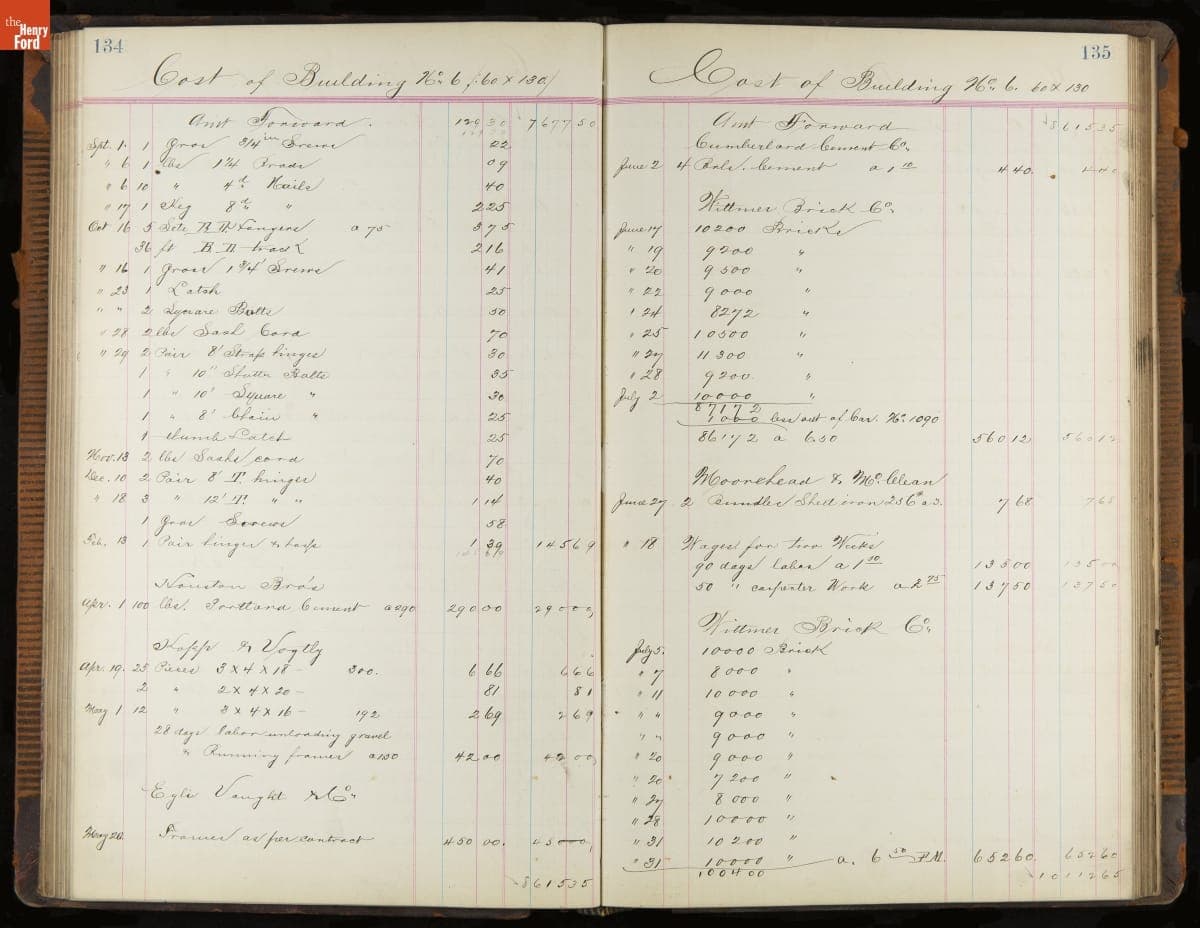 the
Henry
Ford
134
Cost of Building No. 6 (60 x 130)
Amt Forward. 129 30 7677 50
Sept. 1 1 Gros 3/4 in Screws 22
" 6 1 lbs 1 1/4 Brads 09
" 6 10 " 4d Nails 40
" 17 1 Keg 8d " 2 25
Oct 16 5 Sets B. D. Hangers a 75 3 75
36 ft B. D. track 2 16
" 16 1 Gross 1 3/4 Screws 41
" 23 1 Latch 25
" " 2 Square Butts 50
" 28 2 lbs Sash Cord 70
" 29 2 Pair 8" Strap hinges 30
1 " 10" Shutter Bolts 35
1 " 10" Square " 30
1 " 8" Chain " 25
1 thumb Latch 25
Nov. 13 2 lbs Sash cord 70
Dec. 10 2 Pair 8" T. hinges 40
" 18 3 " 12" T. " " 1 14
1 Gros Screws 58
Feb. 13 1 Pair hinges & hasp 1 39 145 69
Houston Bro's
Apr. 1 100 lbs. Portland Cement a 290 290 00 290 00
Kopp & Vogtly
Apr. 19. 25 Pieces 3 x 4 x 18 - 300. 6 66 6 66
2 " 2 x 4 x 20 - 81 81
May 1 12 " 3 x 4 x 16 - 192 2 69 2 69
28 days labor unloading gravel
" Running frames a 150 42 00 42 00
Egli Vaught & Co.
May 20. Frames as per contract 450 00. 450
8615 35
135
Cost of Building No. 6. 60 x 130
Amt Forward 8615 35
Cumberland Cement Co.
June 2 4 Brls. Cement a 1 10 4 40. 4 40
Wittmer Brick Co.
June 17 10200 Bricks
" 19 9200 "
" 20 9500 "
" 22 9000 "
" 24 8272 "
" 25 10500 "
" 27 11300 "
" 28 9200. "
July 2 10000 "
87172
1000 less out of Car. No. 1090
86172 a 6 50 560 12 560 12
Moorehead & McClean
June 27 2 Bundles Sheet iron 256# a 3. 7 68 7 68
" 18 Wages for two Weeks
90 days labor a 1 50 135 00 135 00
50 " carpenter Work a 2 75 137 50 137 50
Wittmer Brick Co.
July 5. 10000 Brick
" 7 8000 "
" 11 10000 "
" " 9000 "
" " 9000 "
" 20 9000 "
" 20 7200 "
" 27 8000 "
" 28 10000 "
" 31 10200 "
" 31 10000 " a. 6 50 P.M. 652 60. 652 60
100400 10112 65